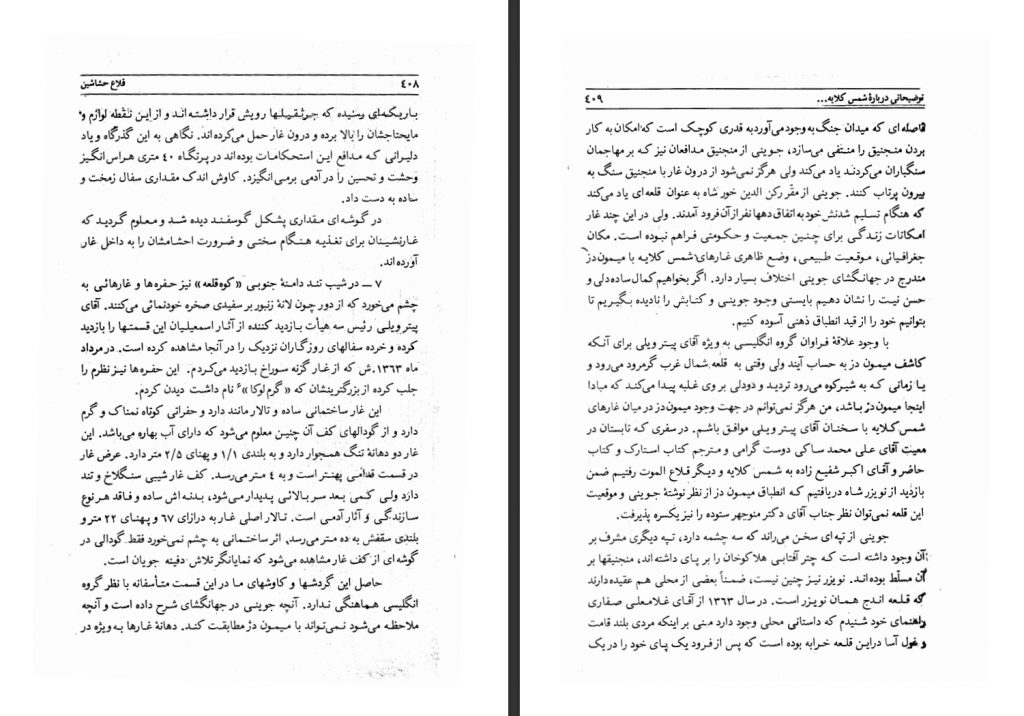 ٤٠٨
قلاع حشاشین
باریکه‌ای رسیده که جرثقیلها رویش قرار داشته‌اند و از این نقطه لوازم و
مایحتاجشان را بالا برده و درون غار حمل می‌کرده‌اند. نگاهی به این گذرگاه و یاد
دلیرانی که مدافع این استحکامات بوده‌اند در پرتگاه ٤٠ متری هراس‌انگیز
وحشت و تحسین را در آدمی برمی‌انگیزد. کاوش اندک مقداری سفال زمخت و
ساده به دست داد.
در گوشه‌ای مقداری پشکل گوسفند دیده شد و معلوم گردید که
غارنشینان برای تغذیه هنگام سختی و ضرورت احشامشان را به داخل غار
آورده‌اند.
٧ ــ در شیب تند دامنهٔ جنوبی «کوه‌قلعه» نیز حفره‌ها و غارهائی به
چشم می‌خورد که از دور چون لانهٔ زنبور بر سفیدی صخره خودنمائی می‌کنند. آقای
پیتر ویلی رئیس سه هیأت بازدید کننده از آثار اسمعیلیان این قسمتها را بازدید
کرده و خرده سفالهای روزگاران نزدیک را در آنجا مشاهده کرده است. در مرداد
ماه ١٣٦٣.ش که از غار گزنه سوراخ بازدید می‌کردم. این حفره‌ها نیز نظرم را
جلب کرده از بزرگترینشان که «گرم‌لوکا»٦ نام داشت دیدن کردم.
این غار ساختمانی ساده و تالار مانند دارد و حفراتی کوتاه نمناک و گرم
دارد و از گودالهای کف آن چنین معلوم می‌شود که دارای آب بهاره می‌باشد. این
غار دو دهانهٔ تنگ همجوار دارد و به بلندی ١/١ و پهنای ٢/٥ متر دارد. عرض غار
در قسمت قدامی پهنتر است و به ٤ متر می‌رسد. کف غار شیبی سنگلاخ و تند
دارد ولی کمی بعد سر بالائی پدیدار می‌شود، بدنه‌اش ساده و فاقد هر نوع
سازندگی و آثار آدمی است. تالار اصلی غار به درازای ٦٧ و پهنای ٢٢ متر و
بلندی سقفش به ده متر می‌رسد. اثر ساختمانی به چشم نمی‌خورد فقط گودالی در
گوشه‌ای از کف غار مشاهده می‌شود که نمایانگر تلاش دفینه جویان است.
حاصل این گردشها و کاوشهای ما در این قسمت متأسفانه با نظر گروه
انگلیسی هماهنگی ندارد. آنچه جوینی در جهانگشای شرح داده است و آنچه
ملاحظه می‌شود نمی‌تواند با میمون دز مطابقت کند. دهانهٔ غارها به ویژه در
توضیحاتی دربارهٔ شمس کلایه...
٤٠٩
فاصله‌ای که میدان جنگ به وجود می‌آورد به قدری کوچک است که امکان به کار
بردن منجنیق را منتفی می‌سازد، جوینی از منجنیق مدافعان نیز که بر مهاجمان
سنگباران می‌کردند یاد می‌کند ولی هرگز نمی‌شود از درون غار با منجنیق سنگ به
بیرون پرتاب کنند. جوینی از مقّر رکن الدین خور شاه به عنوان قلعه‌ای یاد می‌کند
که هنگام تسلیم شدنش خود به اتفاق دهها نفر از آن فرود آمدند. ولی در این چند غار
امکانات زندگی برای چنین جمعیت و حکومتی فراهم نبوده است. مکان
جغرافیائی، موقعیت طبیعی، وضع ظاهری غارهای شمس کلایه با میمون دز
مندرج در جهانگشای جوینی اختلاف بسیار دارد. اگر بخواهیم کمال ساده‌دلی و
حسن نیت را نشان دهیم بایستی وجود جوینی و کتابش را نادیده بگیریم تا
بتوانیم خود را از قید انطباق ذهنی آسوده کنیم.
با وجود علاقهٔ فراوان گروه انگلیسی به ویژه آقای پیتر ویلی برای آنکه
کاشف میمون دز به حساب آیند ولی وقتی به قلعه شمال غرب گرمرود می‌رود و
یا زمانی که به شیرکوه می‌رود تردید و دودلی بر وی غلبه پیدا می‌کند که مبادا
اینجا میمون دز باشد، من هرگز نمی‌توانم در جهت وجود میمون دز در میان غارهای
شمس کلایه با سخنان آقای پیتر ویلی موافق باشم. در سفری که تابستان در
معیت آقای علی محمد ساکی دوست گرامی و مترجم کتاب استارک و کتاب
حاضر و آقای اکبر شفیع زاده به شمس کلایه و دیگر قلاع الموت رفتیم ضمن
بازدید از نویزر شاه دریافتیم که انطباق میمون دز از نظر نوشتهٔ جوینی و موقعیت
این قلعه نمی‌توان نظر جناب آقای دکتر منوچهر ستوده را نیز یکسره پذیرفت.
جوینی از تپه‌ای سخن می‌راند که سه چشمه دارد، تپه دیگری مشرف بر
آن وجود داشته است که چتر آفتابی هلاکوخان را بر پای داشته‌اند، منجنیقها بر
آن مسلّط بوده‌اند. نویزر نیز چنین نیست، ضمناً بعضی از محلی هم عقیده دارند
که قلعه اندج همان نویزر است. در سال ١٣٦٣ از آقای غلامعلی صفاری
راهنمای خود شنیدم که داستانی محلی وجود دارد مبنی بر اینکه مردی بلند قامت
و غول آسا در این قلعه خرابه بوده است که پس از فرود یک پای خود را در یک